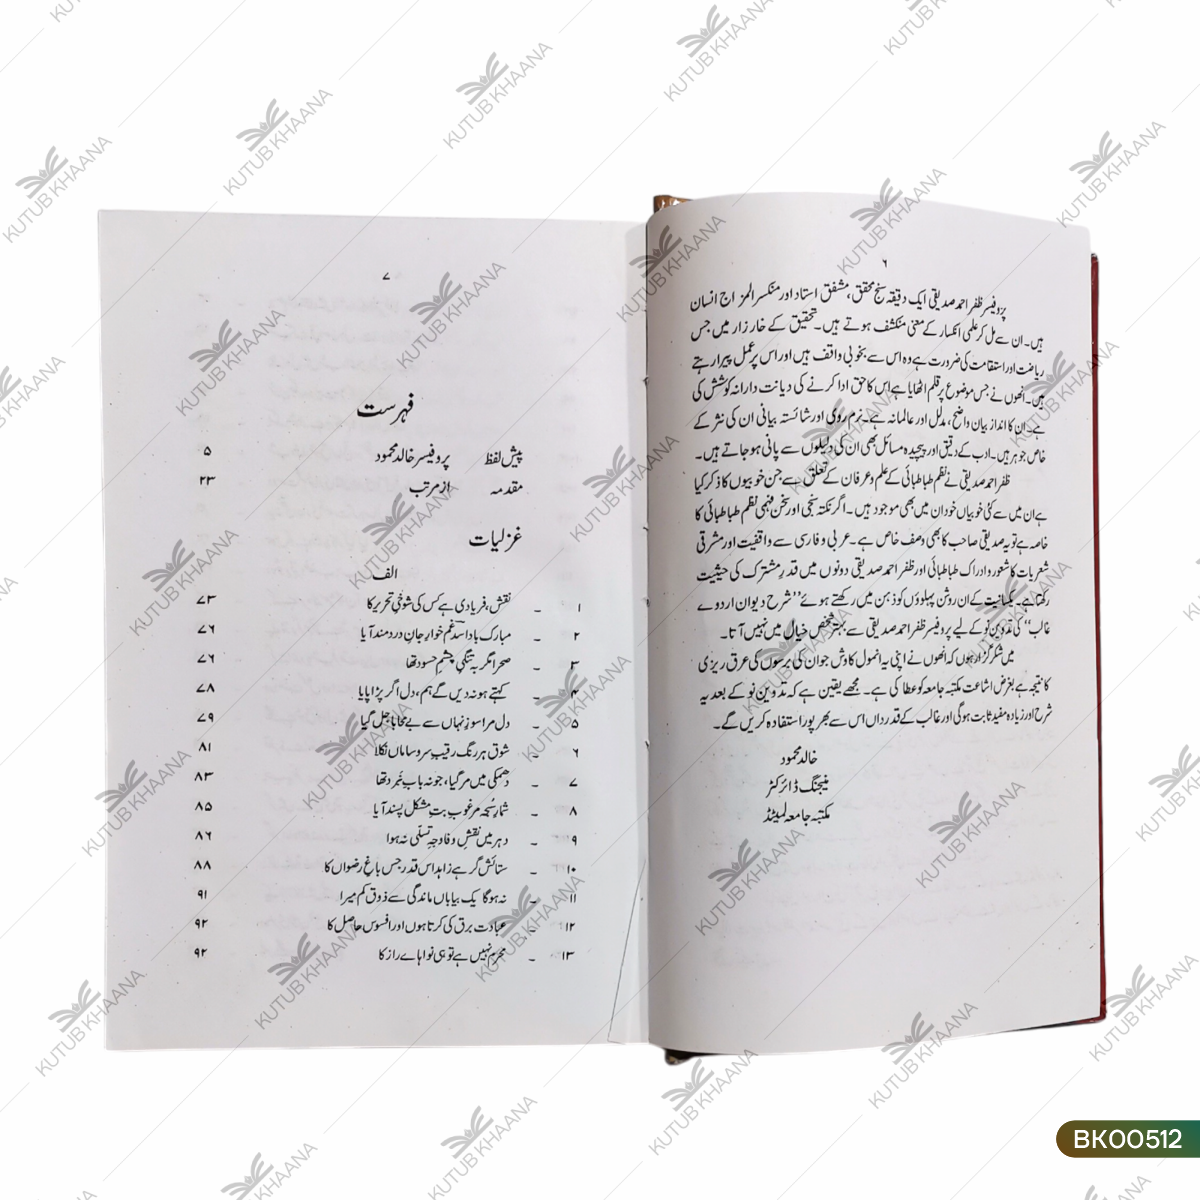 ۶
پروفیسر ظفر احمد صدیقی ایک دقیقہ سنج محقق، مشفق استاد اور منکسر المزاج انسان
ہیں۔ ان سے مل کر علمی انکسار کے معنی منکشف ہوتے ہیں۔ تحقیق کے خارزار میں جس
ریاضت اور استقامت کی ضرورت ہے وہ اس سے بخوبی واقف ہیں اور اس پر عمل پیرا رہتے
ہیں۔ انھوں نے جس موضوع پر قلم اٹھایا ہے اس کا حق ادا کرنے کی دیانت دارانہ کوشش کی
ہے۔ ان کا انداز بیان واضح، مدلل اور عالمانہ ہے۔ نرم روی اور شائستہ بیانی ان کی نثر کے
خاص جوہر ہیں۔ ادب کے دقیق اور پیچیدہ مسائل بھی ان کی دلیلوں سے پانی ہو جاتے ہیں۔
ظفر احمد صدیقی نے نظم طباطبائی کے علم و عرفان کے تعلق سے جن خوبیوں کا ذکر کیا
ہے ان میں سے کئی خوبیاں خود ان میں بھی موجود ہیں۔ اگر نکتہ سنجی اور سخن فہمی نظم طباطبائی کا
خاصہ ہے تو یہ صدیقی صاحب کا بھی وصف خاص ہے۔ عربی و فارسی سے واقفیت اور مشرقی
شعریات کا شعور و ادراک طباطبائی اور ظفر احمد صدیقی دونوں میں قدرِ مشترک کی حیثیت
رکھتا ہے۔ یکسانیت کے ان روشن پہلوؤں کو ذہن میں رکھتے ہوئے ”شرح دیوان اردوے
غالب“ کی تدوین نو کے لیے پروفیسر ظفر احمد صدیقی سے بہتر شخص خیال میں نہیں آتا۔
میں شکر گزار ہوں کہ انھوں نے اپنی یہ انمول کاوش جو ان کی برسوں کی عرق ریزی
کا نتیجہ ہے بغرض اشاعت مکتبہ جامعہ کو عطا کی ہے۔ مجھے یقین ہے کہ تدوین نو کے بعد یہ
شرح اور زیادہ مفید ثابت ہوگی اور غالب کے قدر داں اس سے بھرپور استفادہ کریں گے۔
خالد محمود
منیجنگ ڈائرکٹر
مکتبہ جامعہ لمیٹڈ
۷
فہرست
پیش لفظ پروفیسر خالد محمود ۵
مقدمہ از مرتب ۲۳
غزلیات
الف
۱ - نقش، فریادی ہے کس کی شوخیِ تحریر کا ۷۳
۲ - مبارک باد اسدؔ غم خوارِ جانِ دردمند آیا ۷۶
۳ - صحرا مگر بہ تنگیِ چشمِ حسود تھا ۷۶
۴ - کہتے ہو نہ دیں گے ہم، دل اگر پڑا پایا ۷۸
۵ - دل مرا سوزِ نہاں سے بے محابا جل گیا ۷۹
۶ - شوق ہر رنگ رقیبِ سر و ساماں نکلا ۸۱
۷ - دھمکی میں مر گیا، جو نہ بابِ نبرد تھا ۸۳
۸ - شمارِ سُبحہ مرغوبِ بتِ مشکل پسند آیا ۸۵
۹ - دہر میں نقشِ وفا وجہِ تسلّی نہ ہوا ۸۶
۱۰ - ستائش گر ہے زاہد اس قدر جس باغِ رضواں کا ۸۸
۱۱ - نہ ہوگا یک بیاباں ماندگی سے ذوق کم میرا ۹۱
۱۲ - عبادت برق کی کرتا ہوں اور افسوس حاصل کا ۹۲
۱۳ - محرم نہیں ہے تو ہی نواہاے راز کا ۹۲
KUTUB KHAANA
BK00512